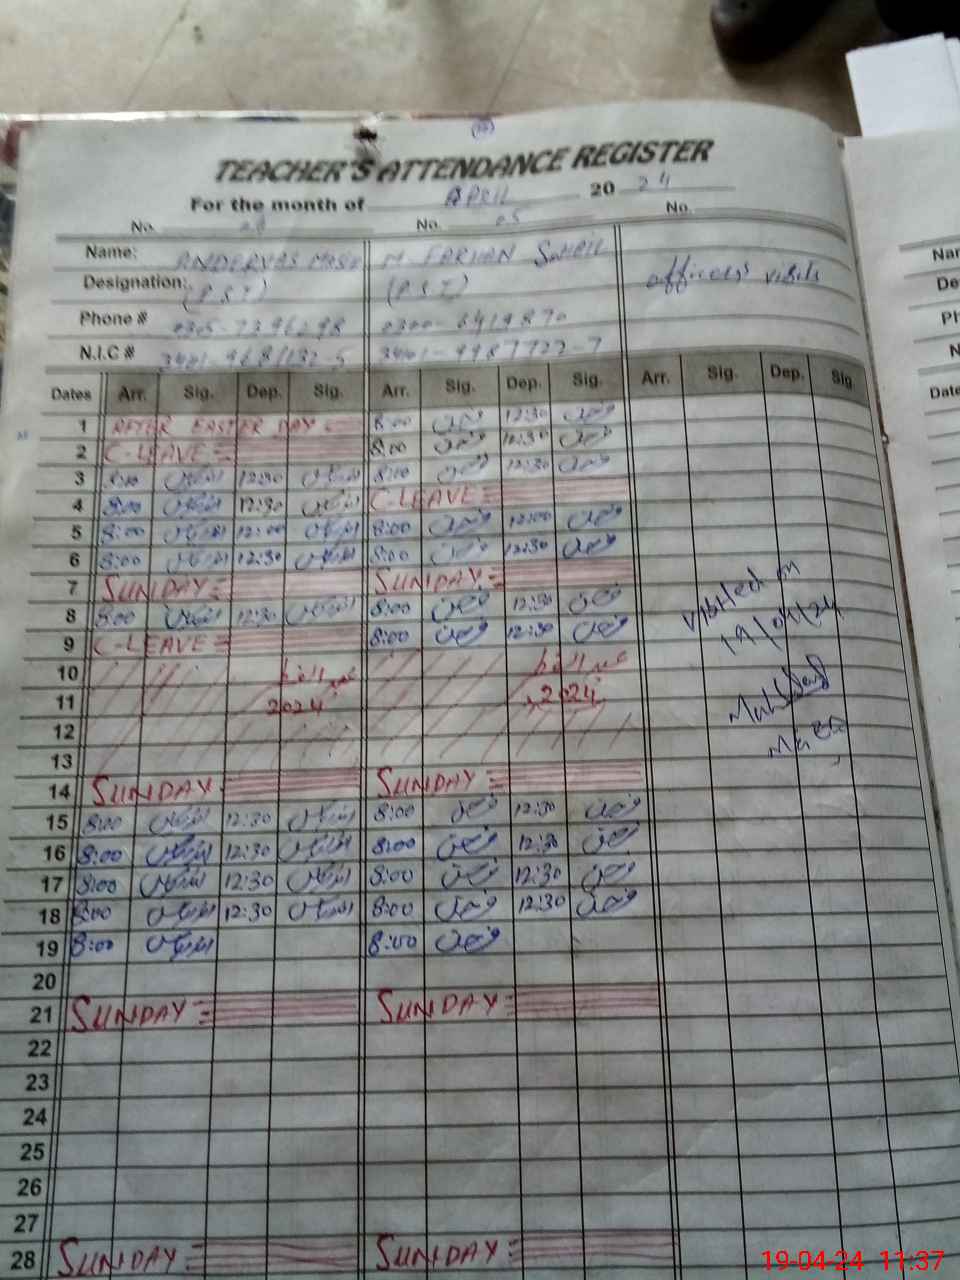 TEACHER'S ATTENDANCE REGISTER
For the month of APRIL 20 24
No. No. 05 No.
Name: M. FARHAN SOHAIL
Designation: (P.S.T) (P.S.T) officers visits
Phone # 0305-7396298 0300-6419870
N.I.C # 3401-9681132-5 3401-9987722-7
Dates Arr. Sig. Dep. Sig. Arr. Sig. Dep. Sig. Arr. Sig. Dep. Sig
1 AFTER EASTER DAY = 8:00 12:30
2 C-LEAVE = 8:00 12:30
3 8:00 12:30 8:00 12:30
4 8:00 12:30 C-LEAVE =
5 8:00 12:00 8:00 12:00
6 8:00 12:30 8:00 12:30
7 SUNDAY = SUNDAY =
8 8:00 12:30 8:00 12:30
9 C-LEAVE = 8:00 12:30
10 عید الفطر عید الفطر
11 2024 2024
12
13
14 SUNDAY SUNDAY =
15 8:00 12:30 8:00 12:30
16 8:00 12:30 8:00 12:30
17 8:00 12:30 8:00 12:30
18 8:00 12:30 8:00 12:30
19 8:00 8:00
20
21 SUNDAY = SUNDAY =
22
23
24
25
26
27
28 SUNDAY = SUNDAY =
Visited on
19/04/24
Nar
De
Ph
N
Date
19-04-24 11:37